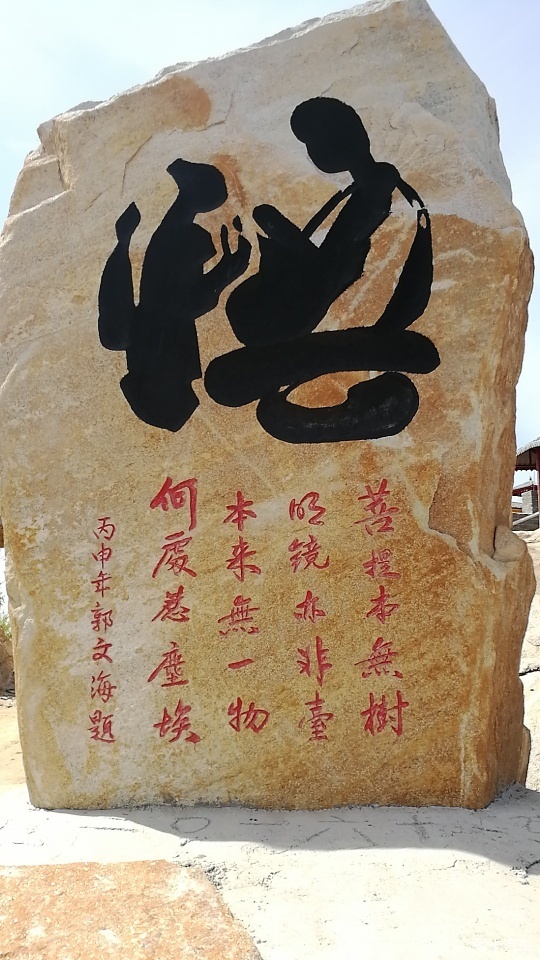 悟
菩提本無樹
明镜亦非臺
本来無一物
何處惹塵埃
丙申年郭文海題